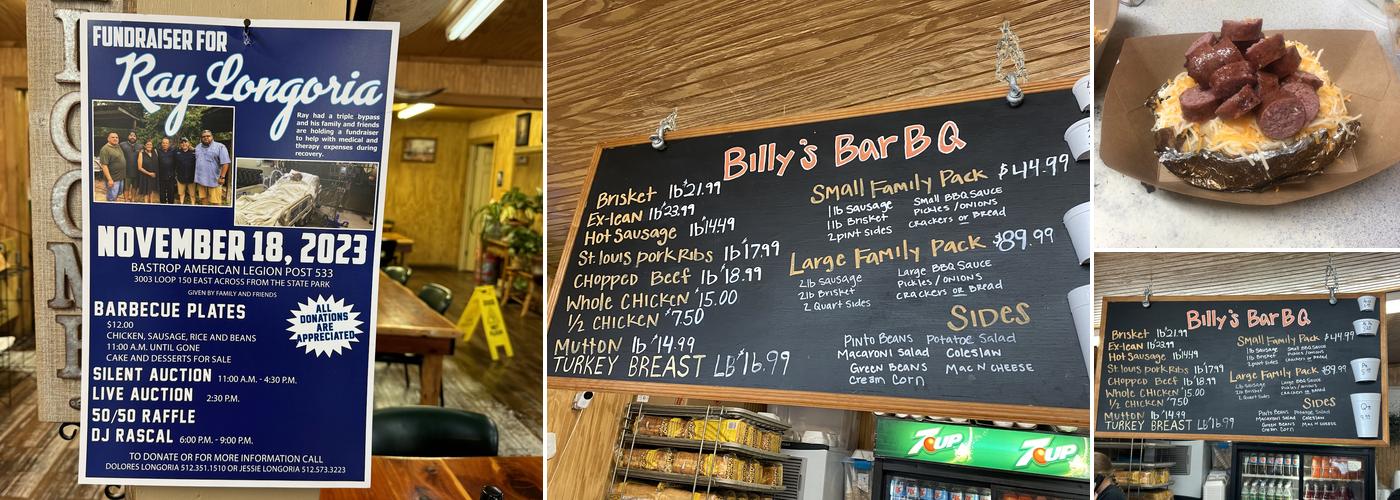 FUNDRAISER FOR
Ray Longoria
Ray had a triple bypass
and his family and friends
are holding a fundraiser
to help with medical and
therapy expenses during
recovery.
NOVEMBER 18, 2023
BASTROP AMERICAN LEGION POST 533
3003 LOOP 150 EAST ACROSS FROM THE STATE PARK
GIVEN BY FAMILY AND FRIENDS
BARBECUE PLATES
$12.00
CHICKEN, SAUSAGE, RICE AND BEANS
11:00 A.M. UNTIL GONE
CAKE AND DESSERTS FOR SALE
ALL
DONATIONS
ARE
APPRECIATED
SILENT AUCTION 11:00 A.M. - 4:30 P.M.
LIVE AUCTION 2:30 P.M.
50/50 RAFFLE
DJ RASCAL 6:00 P.M. - 9:00 P.M.
TO DONATE OR FOR MORE INFORMATION CALL
DOLORES LONGORIA 512.351.1510 OR JESSIE LONGORIA 512.573.3223
Billy's Bar B Q
Brisket lb $21.99
Ex-lean lb $23.99
Hot Sausage lb $14.49
St. louis pork Ribs lb $17.99
Chopped Beef lb $18.99
Whole Chicken $15.00
1/2 Chicken $7.50
Mutton lb $14.99
TURKEY BREAST Lb $16.99
Small Family Pack $44.99
1lb Sausage
1lb Brisket
2 pint Sides
Small BBQ Sauce
Pickles/onions
crackers or Bread
Large Family Pack $89.99
2lb Sausage
2lb Brisket
2 Quart Sides
Large BBQ Sauce
Pickles/onions
crackers or Bread
Sides
Pinto Beans Potatoe Salad
Macaroni Salad Coleslaw
Green Beans Mac N Cheese
Cream Corn
7UP
7UP
Billy's Bar B Q
Brisket lb $21.99
Ex-lean lb $23.99
Hot Sausage lb $14.49
St. louis pork Ribs lb $17.99
Chopped Beef lb $18.99
Whole Chicken $15.00
1/2 Chicken $7.50
Mutton lb $14.99
TURKEY BREAST Lb $16.99
Small Family Pack $44.99
1lb Sausage
1lb Brisket
2 pint Sides
Small BBQ Sauce
Pickles/onions
crackers or Bread
Large Family Pack $89.99
2lb Sausage
2lb Brisket
2 Quart Sides
Large BBQ Sauce
Pickles/onions
crackers or Bread
Sides
Pinto Beans Potatoe Salad
Macaroni Salad Coleslaw
Green Beans Mac N Cheese
Cream Corn